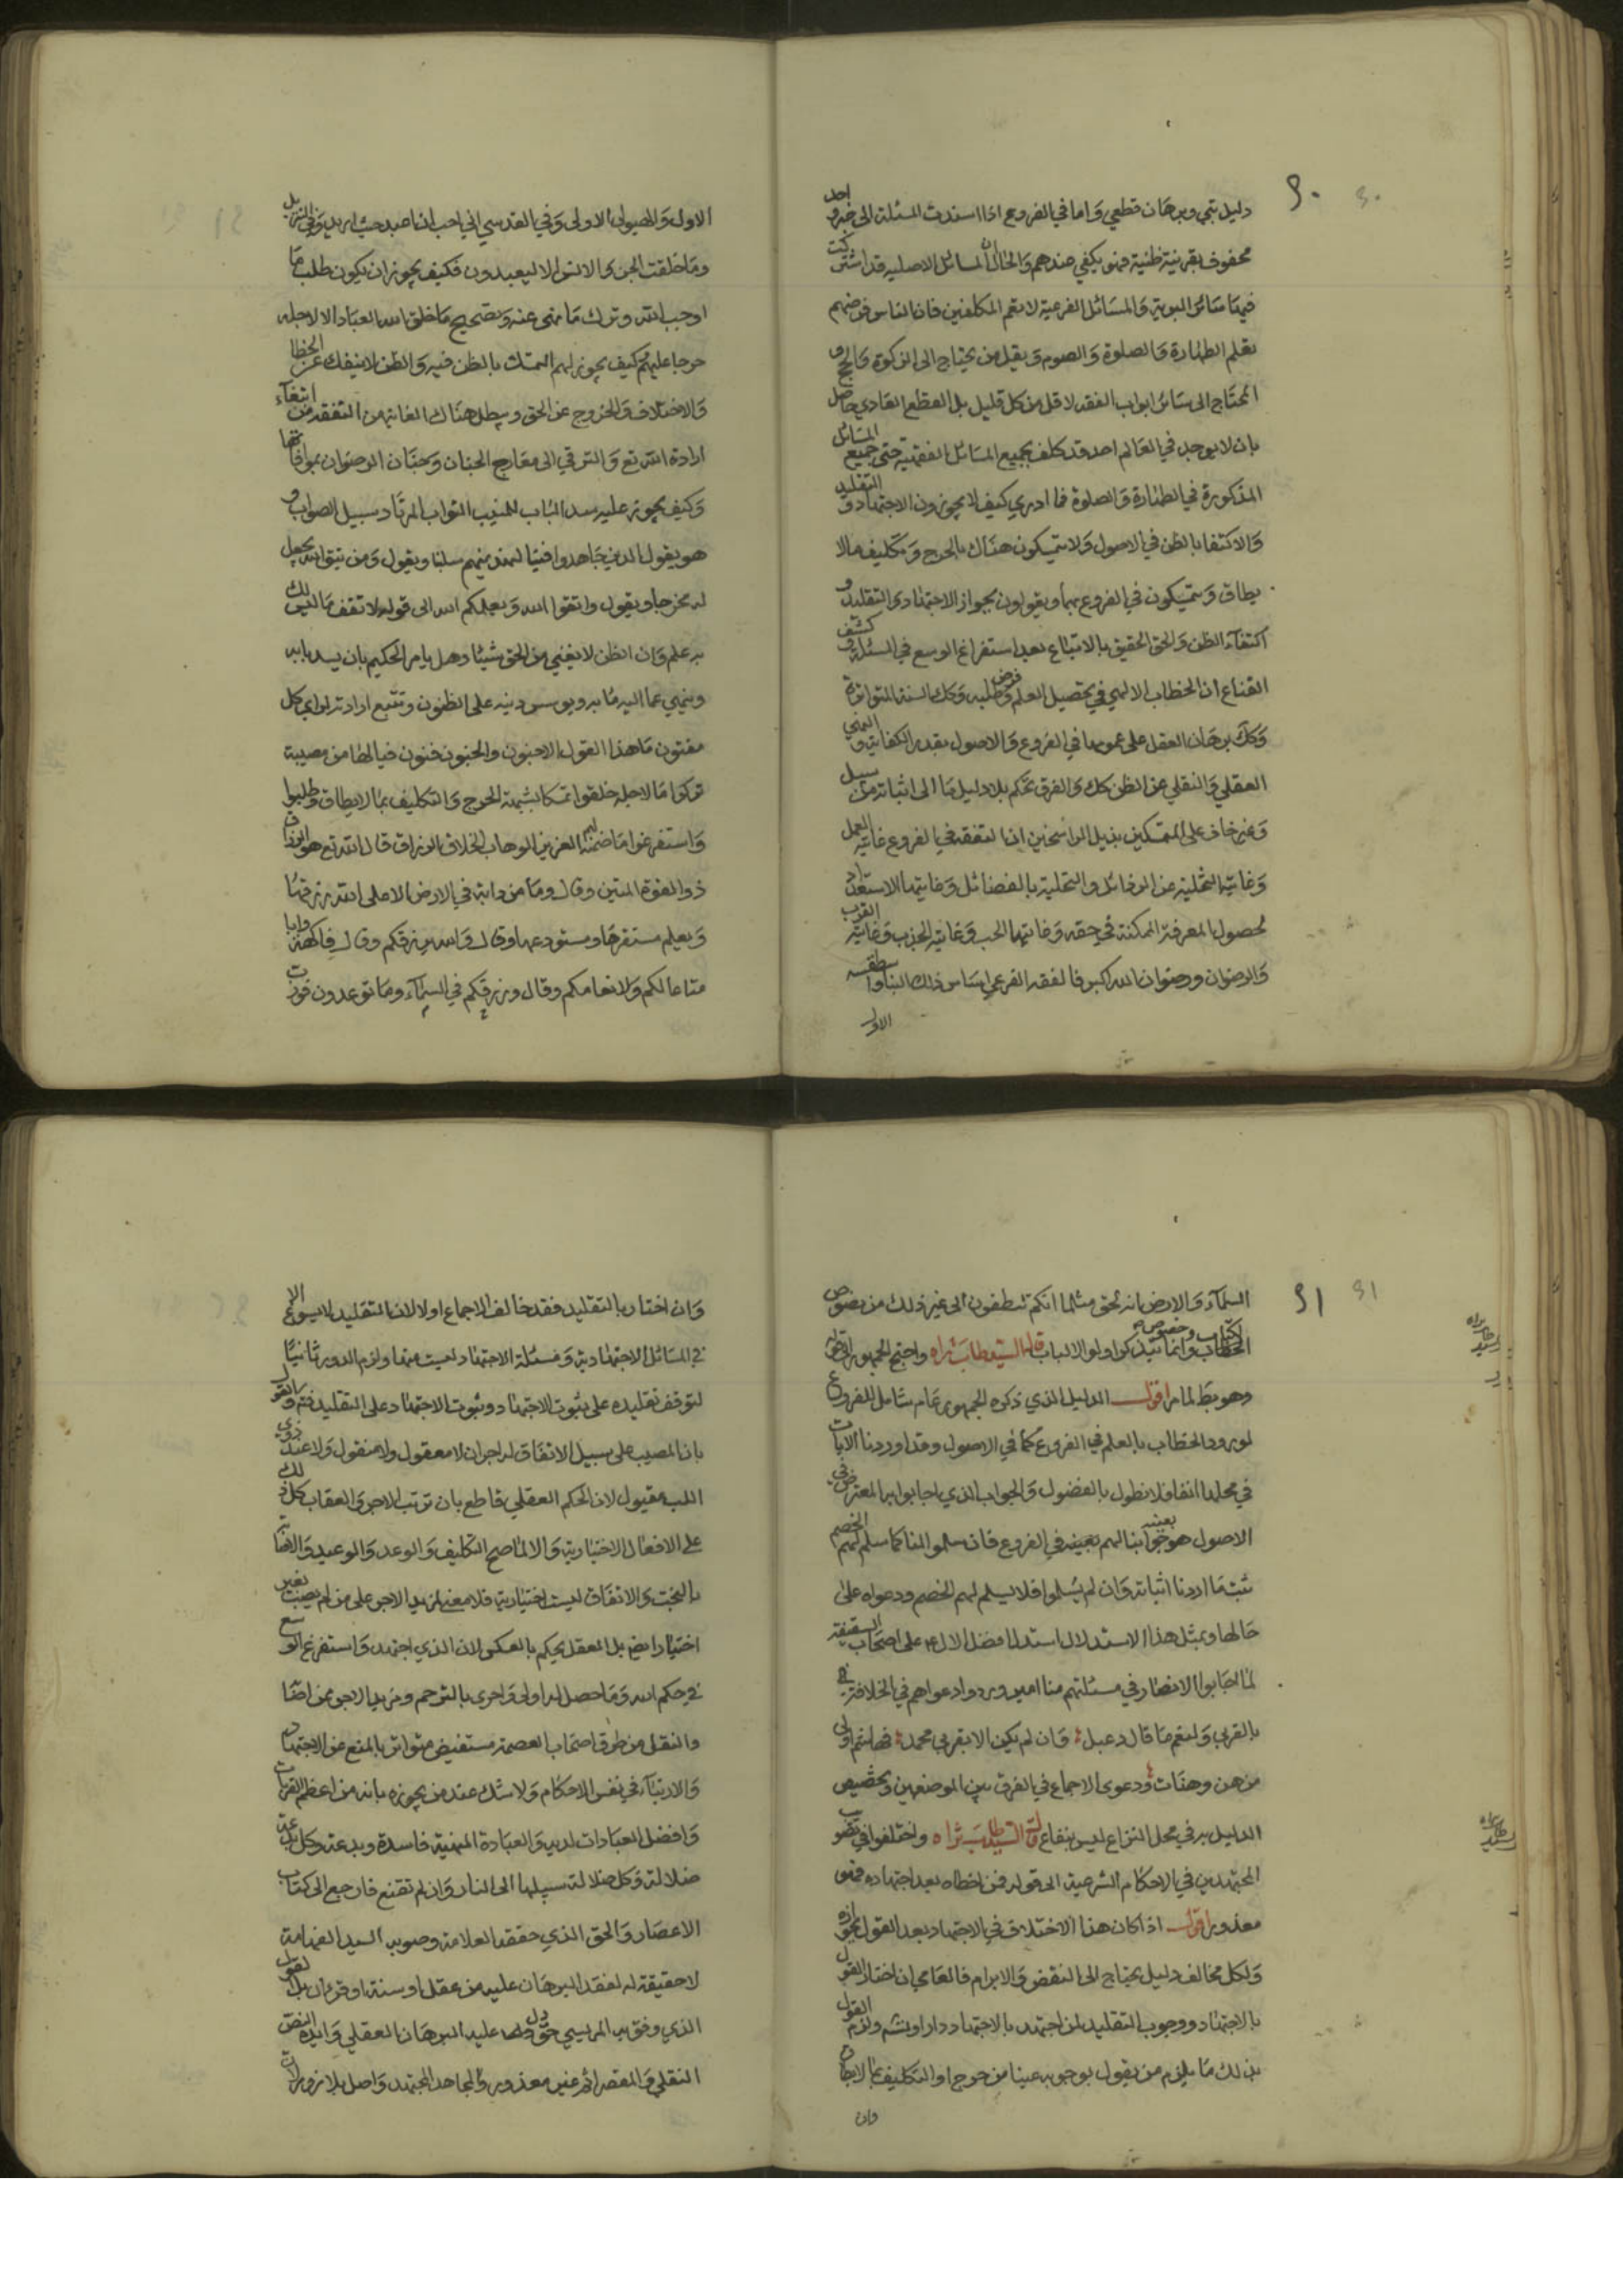 ٩٠
دليل يتمي وبرهان قطعي واما في الفروع اذا اسندت المسئلة الى خبر واحد
محفوف بقرينة ظنية فهو يكفي عندهم والحال ان المسائل الاصلية قد اشتركت
فيها سائر البرية والمسائل الفرعية لا تعم المكلفين فان الناس فرضهم
تعلم الطهارة والصلوة والصوم ويقل من يحتاج الى الزكوة والحج و
المحتاج الى سائر ابواب الفقه لاقل من كل قليل بل القطع العادي حاصل
بان لا يوجد في العالم احد قد كلف بجميع المسائل الفقهية حتى جميع المسائل
المذكورة في الطهارة والصلوة فما ادري كيف لا يجوزون الاجتهاد و التقليد
والاكتفا بالظن في الاصول ولا يتمسكون هناك بالحرج وتكليف ما لا
يطاق ويتمسكون في الفروع بهما ويقولون بجواز الاجتهاد والتقليد و
اكتفاء الظن والحق الحقيق بالاتباع بعد استفراغ الوسع في المسئلة و كشف
القناع ان الخطاب الالهي في تحصيل العلم وطلبه فرض وكك السنة المتواترة
وكك برهان العقل على عمومها في الفروع والاصول بقدر الكفاية و النهي
العقلي والنقلي عن الظن كك والفرق تحكم بلا دليل ما الى اثباته من سبيل
وغير خاف على المتمسكين بذيل الراسخين ان التفقه في الفروع غايته العمل
وغايته التخلية عن الرذائل والتحلية بالفضائل وغايتها الاستعداد
لحصول المعرفة الممكنة في حقه وغايتها الحب وغايته الجذب وغايته القرب
والرضوان ورضوان الله اكبر فالفقه الفرعي اساس ذلك البنا واسطقسه
الاول
الاول والهيولى الاولى وفي القدسي اني احب ان اعبد حيث اريد وفي التنزيل
وما خلقت الجن والانس الا ليعبدون فكيف يجوز ان يكون طلب ما
اوجب الله وترك ما نهى عنه وتصحيح ما خلق الله العباد الا لاجله
حرجا عليهم كيف يجوز لهم التمسك بالظن فيه والظن لا ينفك عن الخطا
والاختلاف والخروج عن الحق وسيطل هناك الغاية من التفقد من ابتغاء
ارادة الله تع والترقي الى معارج الجنان وجنان الرضوان بموافاتها
وكيف يجوز عليه سد الباب للمنيب التواب المرتاد سبيل الصواب و
هو يقول الذين جاهدوا فينا لنهدينهم سبلنا ويقول ومن يتق الله يجعل
له مخرجا ويقول واتقوا الله ويعلمكم الله الى قوله ولا تقف ما ليس لك
به علم وان الظن لا يغني من الحق شيئا وهل يامر الحكيم بان يسد بابه
وينهي عما اليه مآبه ويوسس دينه على الظنون وتتبع ارادته لراي كل
مفتون ما هذا القول الا جنون والجنون فنون فيا لها من مصيبة
تركوا ما لاجله خلقوا تمسكا بشبهة الحرج والتكليف بما لا يطاق وطلبوا
واستفرغوا ما ضمنه لهم العزيز الوهاب الخلاق الرزاق قال الله تع هو الرزاق
ذو القوة المتين وقال وما من دابة في الارض الا على الله رزقها
ويعلم مستقرها ومستودعها وقال والله يرزقكم وقال وفاكهة وابا
متاعا لكم ولانعامكم وقال ورزقكم في السماء وما توعدون فورب
٩١
السماء والارض انه لحق مثلما انكم تنطقون الى غير ذلك من نصوص
الكتاب وخصوص الخطاب وانما يتذكر اولو الالباب قال السيد طاب ثراه واحتج الجمهور الى قوله
وهو بط لما مر اقول الدليل الذي ذكره الجمهور عام شامل للفروع
لورود الخطاب بالعلم في الفروع كما في الاصول وقد اوردنا الايات
في محلها انفا فلا نطول بالفضول والجواب الذي اجابوا به المعترض في
الاصول هو جوابنا لهم بعينه في الفروع فان سلموا لنا كما سلم لهم الخصم
ثبت ما اردنا اثباته وان لم يسلموا فلا يسلم لهم الخصم ودعواه على
حالها وبمثل هذا الاستدلال استدلنا فضل الال ع على اصحاب السقيفة
لما اجابوا الانصار في مسئلتهم منا امير وردوا دعواهم في الخلافة
بالقربى ولنعم ما قال دعبل وان لم يكن الا بقربى محمد فهاشم اولى
من هن وهنات ودعوى الاجماع في الفرق بين الموضعين وتخصيص
الدليل به في محل النزاع ليس بنفاع قال السيد طاب ثراه واختلفوا في تصويب
المجتهدين في الاحكام الشرعية الى قوله فمن اخطاه بعد اجتهاده فهو
معذور اقول اذا كان هذا الاختلاف في الاجتهاد بعد القول بجوازه
ولكل مخالف دليل يحتاج الى النقض والابرام فالعامي ان اختار القول
بالاجتهاد ووجوب التقليد لمن اجتهد بالاجتهاد دار او لزم القول
بذلك ما يلزم من يقول بوجوبه عينا من حرج او التكليف بما لا يطاق
وان
وان اختار بالتقليد فقد خالف الاجماع اولا لان التقليد لا يسوغ الا
في المسائل الاجتهادية ومسئلة الاجتهاد ليست منها ولزم الدور ثانيا
لتوقف تقليده على ثبوت الاجتهاد وثبوت الاجتهاد على التقليد فتم والقول
بان المصيب على سبيل الاتفاق له اجران لا معقول ولا منقول ولا عند ذوي
اللب مقبول لان الحكم العقلي قاطع بان ترتب الاجر والعقاب كل ذلك
على الافعال الاختيارية والا لما صح التكليف والوعد والوعيد والاصابة
بالبخت والاتفاق ليست اختيارية فلا معنى لمزيد الاجر على من لم يصب بغير
اختياره ايضا بل العقل يحكم بالعكس لان الذي اجتهد واستفرغ الوسع
في حكم الله وما حصل له اولى واحرى بالترحم ومزيد الاجر ممن اصاب
والنقل من طرق اصحاب العصمة مستفيض متواتر بالمنع عن الاجتهاد
والارتياء في نفس الاحكام ولا شك عند من يجوزه بانه من اعظم القربات
وافضل العبادات لديه والعبادة المنهية فاسدة وبدعة وكل بدعة
ضلالة وكل ضلالة سبيلها الى النار وان لم تقنع فارجع الى كتاب
الاعصار والحق الذي حققه العلامة وصوبه السيد الفهامة
لا حقيقة له لفقد البرهان عليه من عقل او سنة او قرءان بل القول
الذي وفق به المريسي حق دل عليه البرهان العقلي وايده النص
النقلي والمقصر اثم غير معذور والمجاهد المجتهد واصل بلا زور